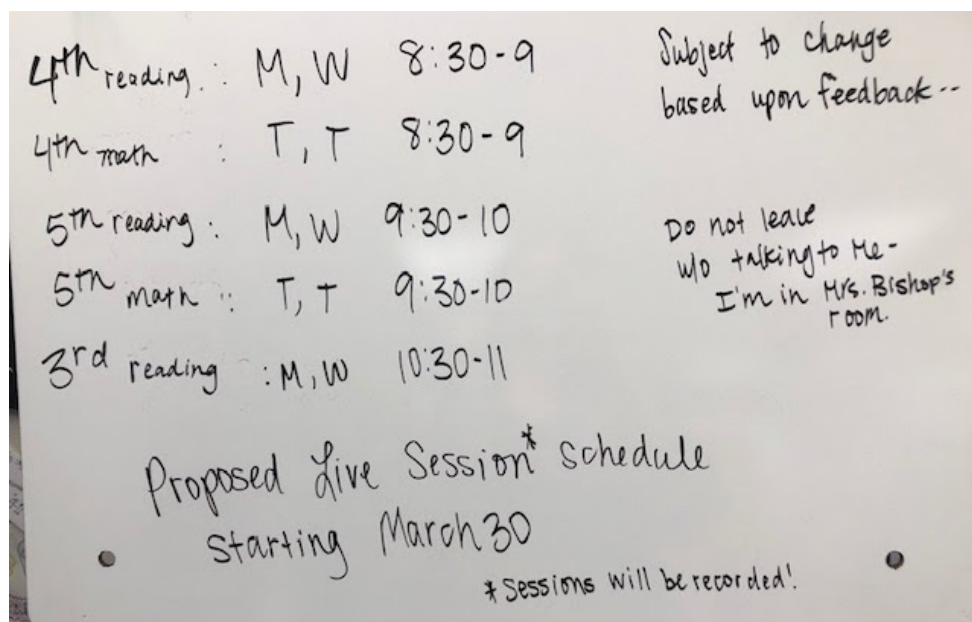 4th reading : M, W 8:30-9
4th math : T, T 8:30-9
5th reading : M, W 9:30-10
5th math : T, T 9:30-10
3rd reading : M, W 10:30-11
Subject to change
based upon feedback--
Do not leave
w/o talking to Me-
I'm in Mrs. Bishop's
room.
Proposed Live Session* schedule
starting March 30
*Sessions will be recorded!